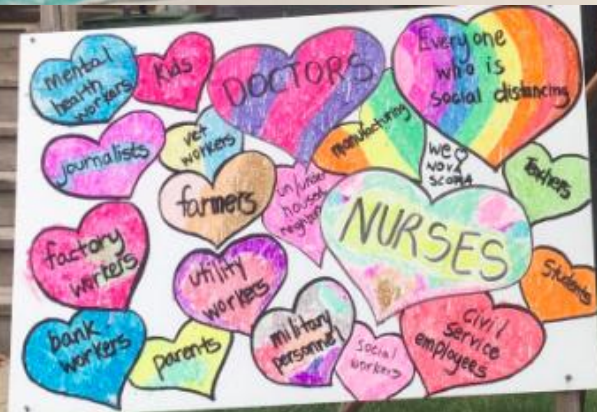 mental
health
workers
Kids
DOCTORS
Everyone
who is
social distancing
journalists
vet
workers
manufacturing
we
NOVA
SCOTIA
Teachers
farmers
un/under
housed
neighbors
NURSES
factory
workers
utility
workers
Students
bank
workers
parents
military
personnel
social
workers
civil
service
employees